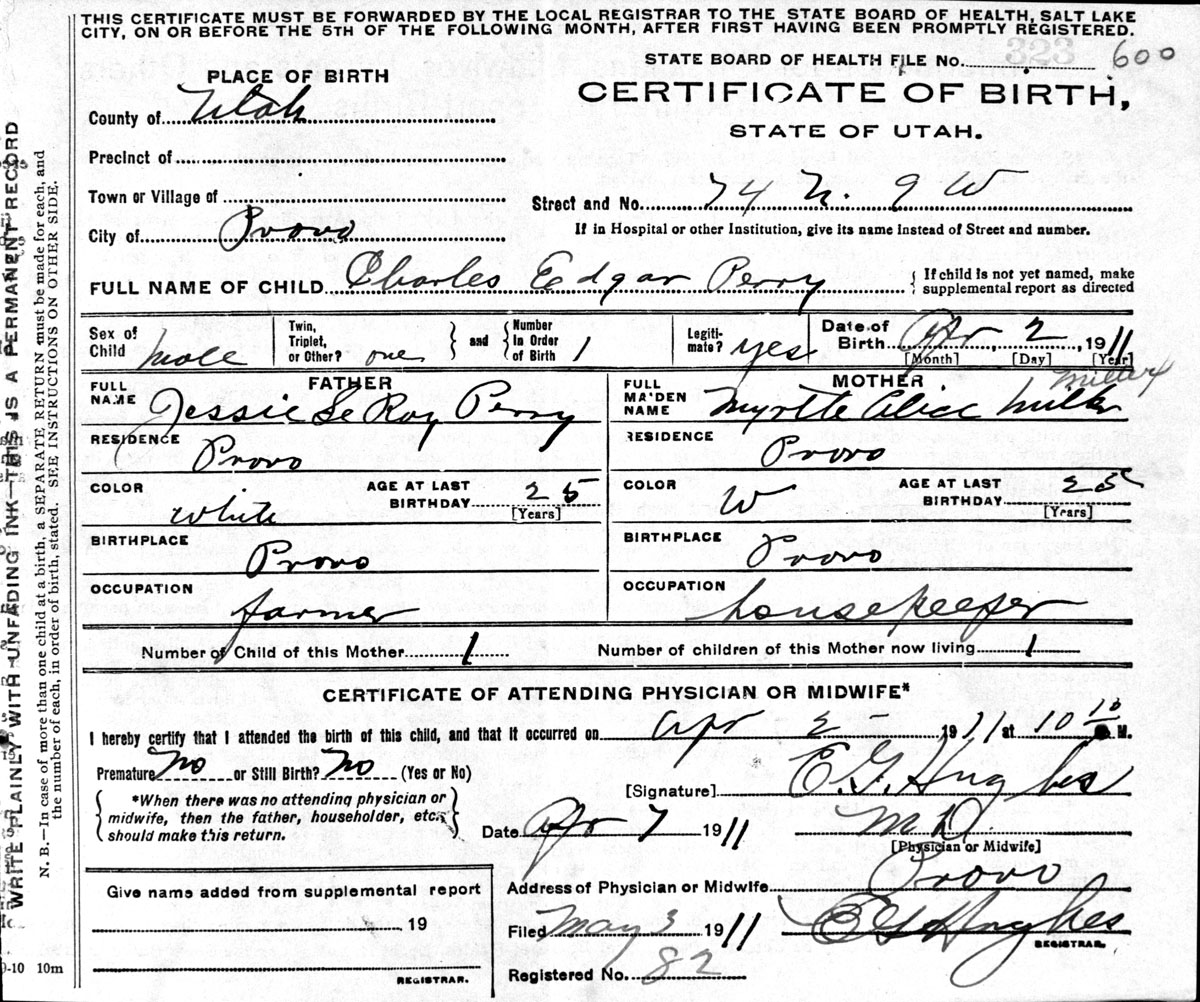 THIS CERTIFICATE MUST BE FORWARDED BY THE LOCAL REGISTRAR TO THE STATE BOARD OF HEALTH, SALT LAKE
CITY, ON OR BEFORE THE 5TH OF THE FOLLOWING MONTH, AFTER FIRST HAVING BEEN PROMPTLY REGISTERED.
STATE BOARD OF HEALTH FILE No. 323 600
PLACE OF BIRTH
CERTIFICATE OF BIRTH,
STATE OF UTAH.
County of Utah
Precinct of
Town or Village of
Street and No. 74 N. 9 W
City of Provo
If in Hospital or other Institution, give its name instead of Street and number.
FULL NAME OF CHILD Charles Edgar Perry
{ If child is not yet named, make
supplemental report as directed
Sex of
Child male
Twin,
Triplet,
or Other? one
} and {
Number
In Order
of Birth 1
Legiti-
mate? yes
Date of
Birth Apr 2, 1911
[Month] [Day] [Year]
FATHER
FULL
NAME Jessie Le Roy Perry
MOTHER
Miller x
FULL
MAIDEN
NAME Myrtle Alice Miller
RESIDENCE Provo
RESIDENCE Provo
COLOR white
AGE AT LAST
BIRTHDAY 25
[Years]
COLOR W
AGE AT LAST
BIRTHDAY 25
[Years]
BIRTHPLACE Provo
BIRTHPLACE Provo
OCCUPATION farmer
OCCUPATION housekeeper
Number of Child of this Mother 1
Number of children of this Mother now living 1
CERTIFICATE OF ATTENDING PHYSICIAN OR MIDWIFE*
I hereby certify that I attended the birth of this child, and that it occurred on Apr 2 - 1911 at 10 10 M.
Premature No or Still Birth? No (Yes or No)
[Signature] E. G. Hughes
{ *When there was no attending physician or
midwife, then the father, householder, etc.,
should make this return. }
Date Apr 7 1911
M D.
[Physician or Midwife]
Address of Physician or Midwife Provo
Give name added from supplemental report
19
REGISTRAR.
Filed May 3 1911
E G Hughes
REGISTRAR.
Registered No. 82
WRITE PLAINLY WITH UNFADING INK—THIS IS A PERMANENT RECORD
N. B.—In case of more than one child at a birth, a SEPARATE RETURN must be made for each, and
the number of each, in order of birth, stated. SEE INSTRUCTIONS ON OTHER SIDE.
9-10 10m